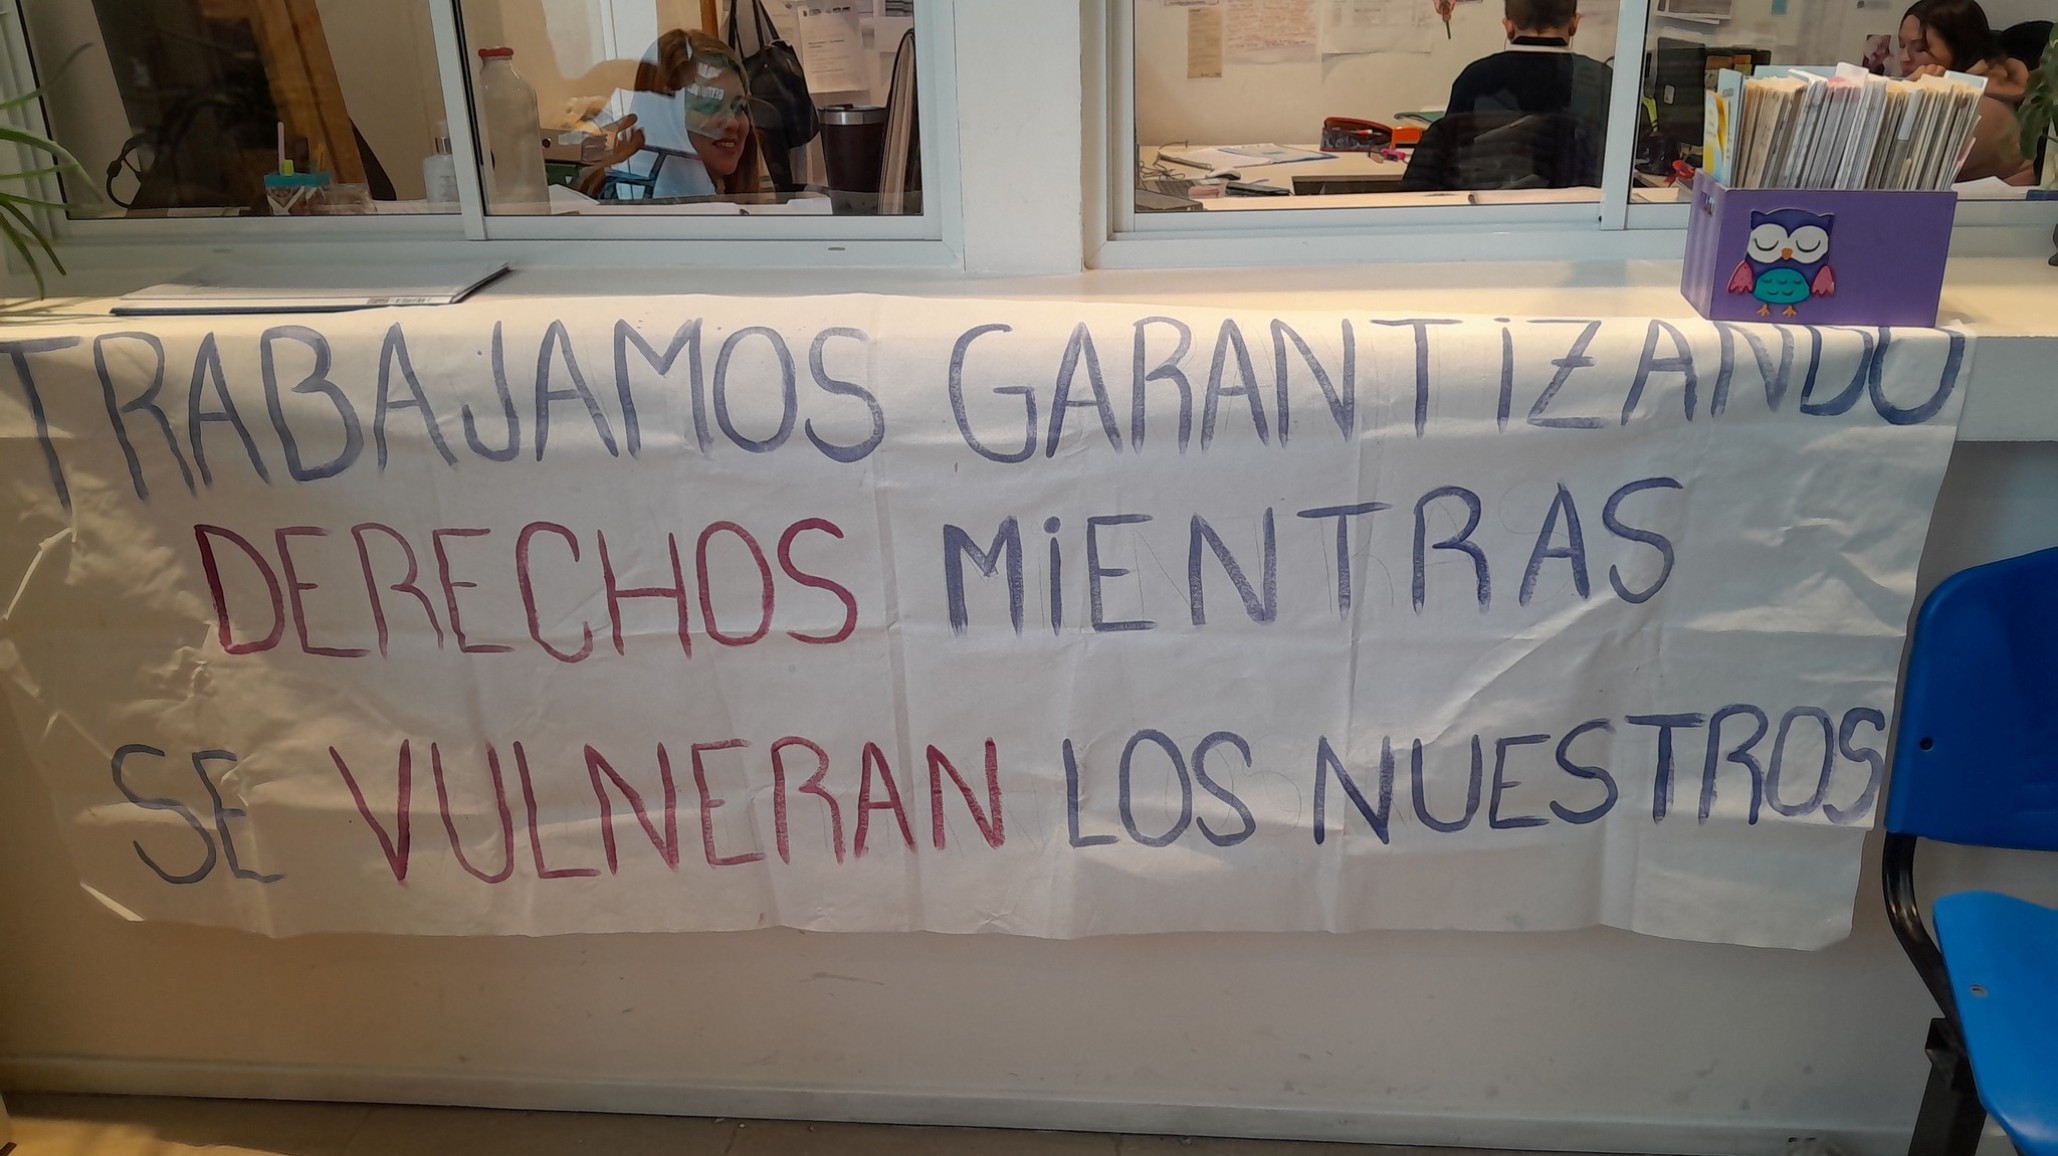 TRABAJAMOS GARANTiZANDO
DERECHOS MiENTRAS
SE VULNERAN LOS NUESTROS